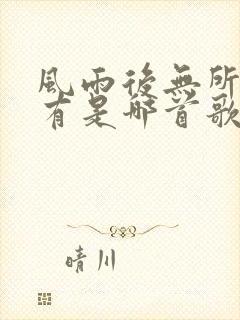 風雨後無所
有是哪首歌
晴川